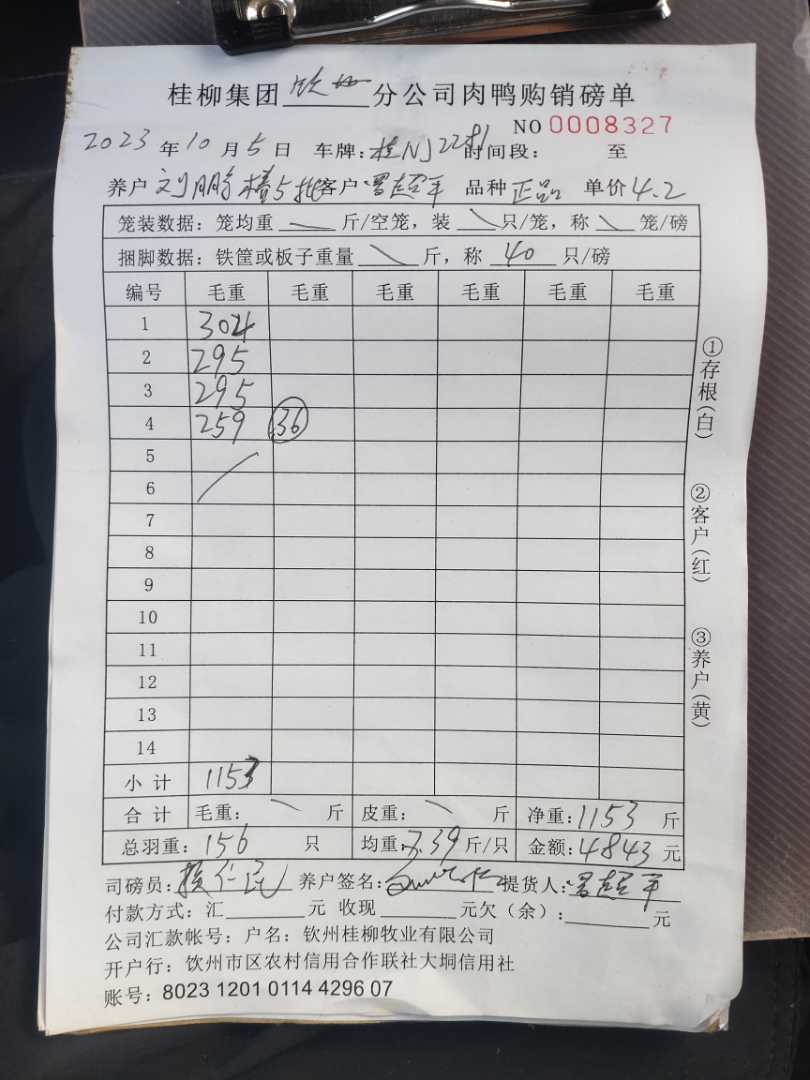 桂柳集团钦州分公司肉鸭购销磅单
NO 0008327
2023年10月5日 车牌:桂NJ22 时间段: 至
养户刘鹏 5批客户曾超平 品种正品 单价4.2
笼装数据:笼均重 斤/空笼,装 只/笼,称 笼/磅
捆脚数据:铁筐或板子重量 斤,称 40 只/磅
编号 毛重 毛重 毛重 毛重 毛重 毛重
1 304
2 295
3 295
4 259 36
5
6
7
8
9
10
11
12
13
14
小计 1153
合计 毛重: 斤 皮重: 斤 净重:1153 斤
总羽重:156 只 均重:7.39斤/只 金额:4843元
司磅员: 仁民 养户签名: 提货人:曾超平
付款方式:汇 元 收现 元欠(余): 元
公司汇款帐号:户名:钦州桂柳牧业有限公司
开户行:钦州市区农村信用合作联社大垌信用社
账号:8023 1201 0114 4296 07
①存根(白)
②客户(红)
③养户(黄)